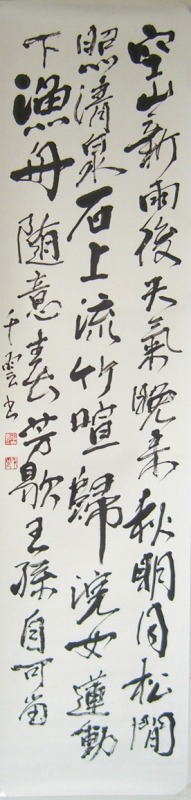 空山新雨後天氣晚来秋明月松間
照清泉石上流竹喧歸浣女蓮動
下漁舟随意春芳歇王孫自可留
千雲书